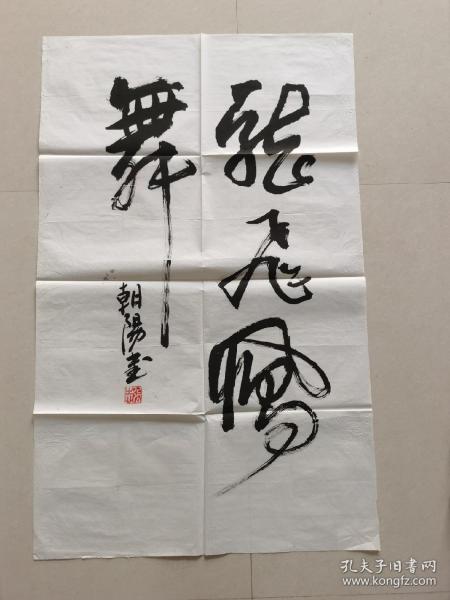 龍飛鳳
舞
朝陽書
孔夫子旧书网
www.kongfz.com